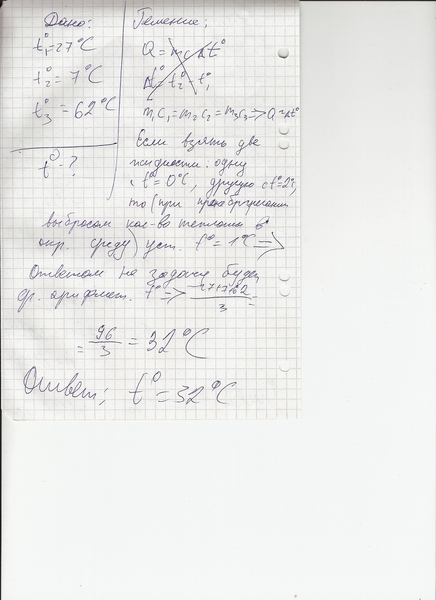 Дано:
Решение;
t°₁=27°C
t°₂= 7°C
t°₃ = 62°C
t° - ?
Q = mcΔt°
Δt°=t°₂-t°₁
m₁c₁=m₂c₂=m₃c₃=> Q~Δt°
Если взять две
жидкости: одну
с t°=0°C, другую с t°=2°,
то (при пренебрежении
выбросом кол-во теплоты в
окр. среду) уст. t°= 1°C =>
Ответом на задачу будет
ср. арифмет. t° => 27+7+62/3 =
= 96/3 = 32°C
Ответ; t°=32°C